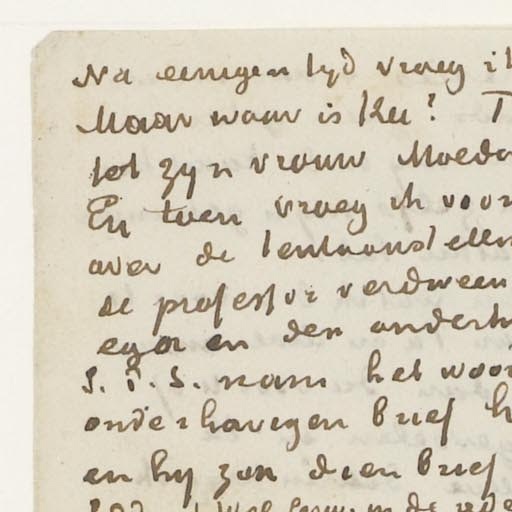 Na eenigen tyd vroeg ik
Maar waar is Kee? T
tot zyn vrouw Moeder
En toen vroeg ik voor
over de tentoonstellin
de professor verdween
egaren den onderh
S.T.S. nam het woor
onderhavigen brief h
en hy zou dien brief